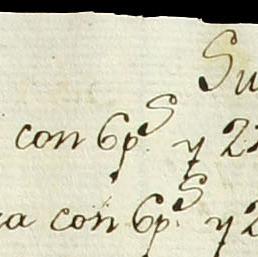 Su
con 6p.S y 2
ra con 6p.S y 2